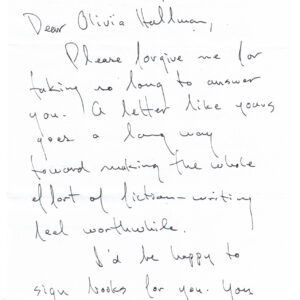 Dear Olivia Hallman,
Please forgive me for
taking so long to answer
you. A letter like yours
goes a long way
toward making the whole
effort of fiction-writing
feel worthwhile.
I'd be happy to
sign books for you. You